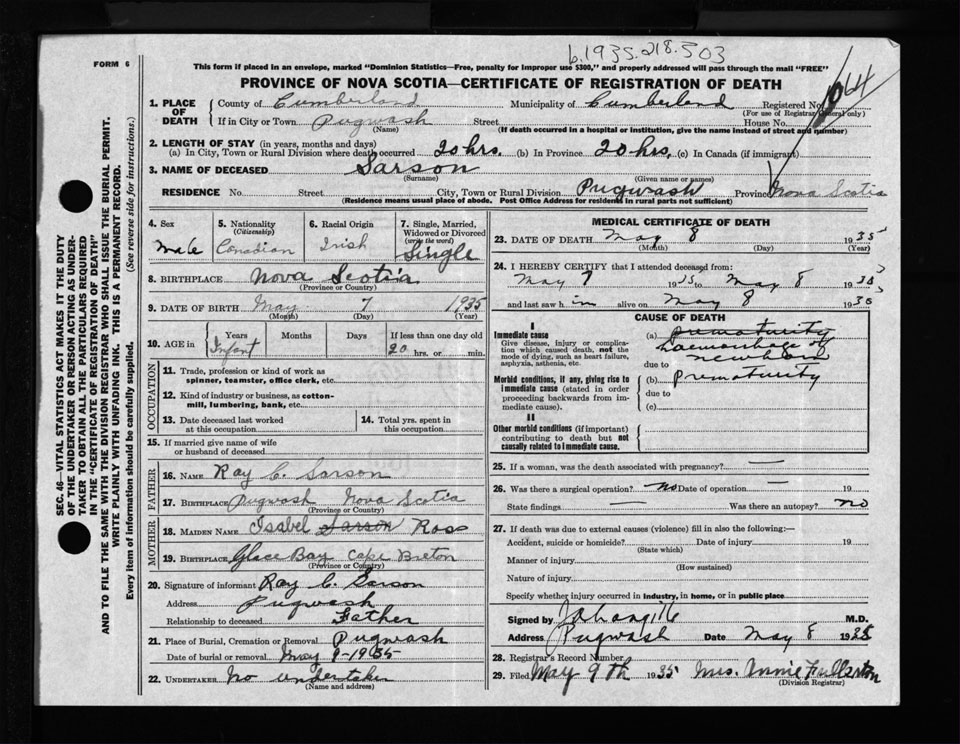 b.1935.218.503
FORM 6
This form if placed in an envelope, marked "Dominion Statistics—Free, penalty for improper use $300," and properly addressed will pass through the mail "FREE"
PROVINCE OF NOVA SCOTIA—CERTIFICATE OF REGISTRATION OF DEATH
64
1. PLACE OF DEATH
County of Cumberland Municipality of Cumberland Registered No.
(For use of Registrar General only)
If in City or Town Pugwash Street House No.
(Name) (If death occurred in a hospital or institution, give the name instead of street and number)
2. LENGTH OF STAY (in years, months and days)
(a) In City, Town or Rural Division where death occurred 20 hrs. (b) In Province 20 hrs. (c) In Canada (if immigrant)
3. NAME OF DECEASED Sarson
(Surname) (Given name or names)
RESIDENCE No. Street City, Town or Rural Division Pugwash Province Nova Scotia
(Residence means usual place of abode. Post Office Address for residents in rural parts not sufficient)
4. Sex
Male
5. Nationality
(Citizenship)
Canadian
6. Racial Origin
Irish
7. Single, Married, Widowed or Divorced
(write the word)
Single
8. BIRTHPLACE Nova Scotia
(Province or Country)
9. DATE OF BIRTH May 7 1935
(Month) (Day) (Year)
10. AGE in
Years Months Days If less than one day old
Infant 20 hrs. or min.
OCCUPATION
11. Trade, profession or kind of work as spinner, teamster, office clerk, etc.
12. Kind of industry or business, as cotton-mill, lumbering, bank, etc.
13. Date deceased last worked at this occupation
14. Total yrs. spent in this occupation
15. If married give name of wife or husband of deceased
FATHER
16. NAME Ray C. Sarson
17. BIRTHPLACE Pugwash Nova Scotia
(Province or Country)
MOTHER
18. MAIDEN NAME Isabel Sarson Ross
19. BIRTHPLACE Glace Bay Cape Breton
(Province or Country)
20. Signature of informant Ray C. Sarson
Address Pugwash
Relationship to deceased Father
21. Place of Burial, Cremation or Removal Pugwash
Date of burial or removal May 9-1935
22. UNDERTAKER No undertaker
(Name and address)
MEDICAL CERTIFICATE OF DEATH
23. DATE OF DEATH May 8 1935
(Month) (Day) (Year)
24. I HEREBY CERTIFY that I attended deceased from:
May 7 1935 to May 8 1935
and last saw him alive on May 8 1935
CAUSE OF DEATH
I
Immediate cause
Give disease, injury or complication which caused death, not the mode of dying, such as heart failure, asphyxia, asthenia, etc.
(a) prematurity
haemorrhage of
newborn
due to
Morbid conditions, if any, giving rise to immediate cause (stated in order proceeding backwards from immediate cause).
(b) prematurity
due to
(c)
II
Other morbid conditions (if important) contributing to death but not causally related to immediate cause.
25. If a woman, was the death associated with pregnancy? —
26. Was there a surgical operation? no Date of operation — 19
State findings — Was there an autopsy? no
27. If death was due to external causes (violence) fill in also the following:—
Accident, suicide or homicide? Date of injury 19
(State which)
Manner of injury
(How sustained)
Nature of injury
Specify whether injury occurred in industry, in home, or in public place
Signed by M.D.
Address Pugwash Date May 8 1935
28. Registrar's Record Number
29. Filed May 9th 1935 Mrs. Annie Fullerton
(Division Registrar)
SEC. 46—VITAL STATISTICS ACT MAKES IT THE DUTY
OF THE UNDERTAKER OR PERSON ACTING AS UNDER-
TAKER TO OBTAIN ALL THE PARTICULARS REQUIRED
IN THE "CERTIFICATE OF REGISTRATION OF DEATH"
AND TO FILE THE SAME WITH THE DIVISION REGISTRAR WHO SHALL ISSUE THE BURIAL PERMIT.
WRITE PLAINLY WITH UNFADING INK. THIS IS A PERMANENT RECORD.
Every item of information should be carefully supplied. (See reverse side for instructions.)